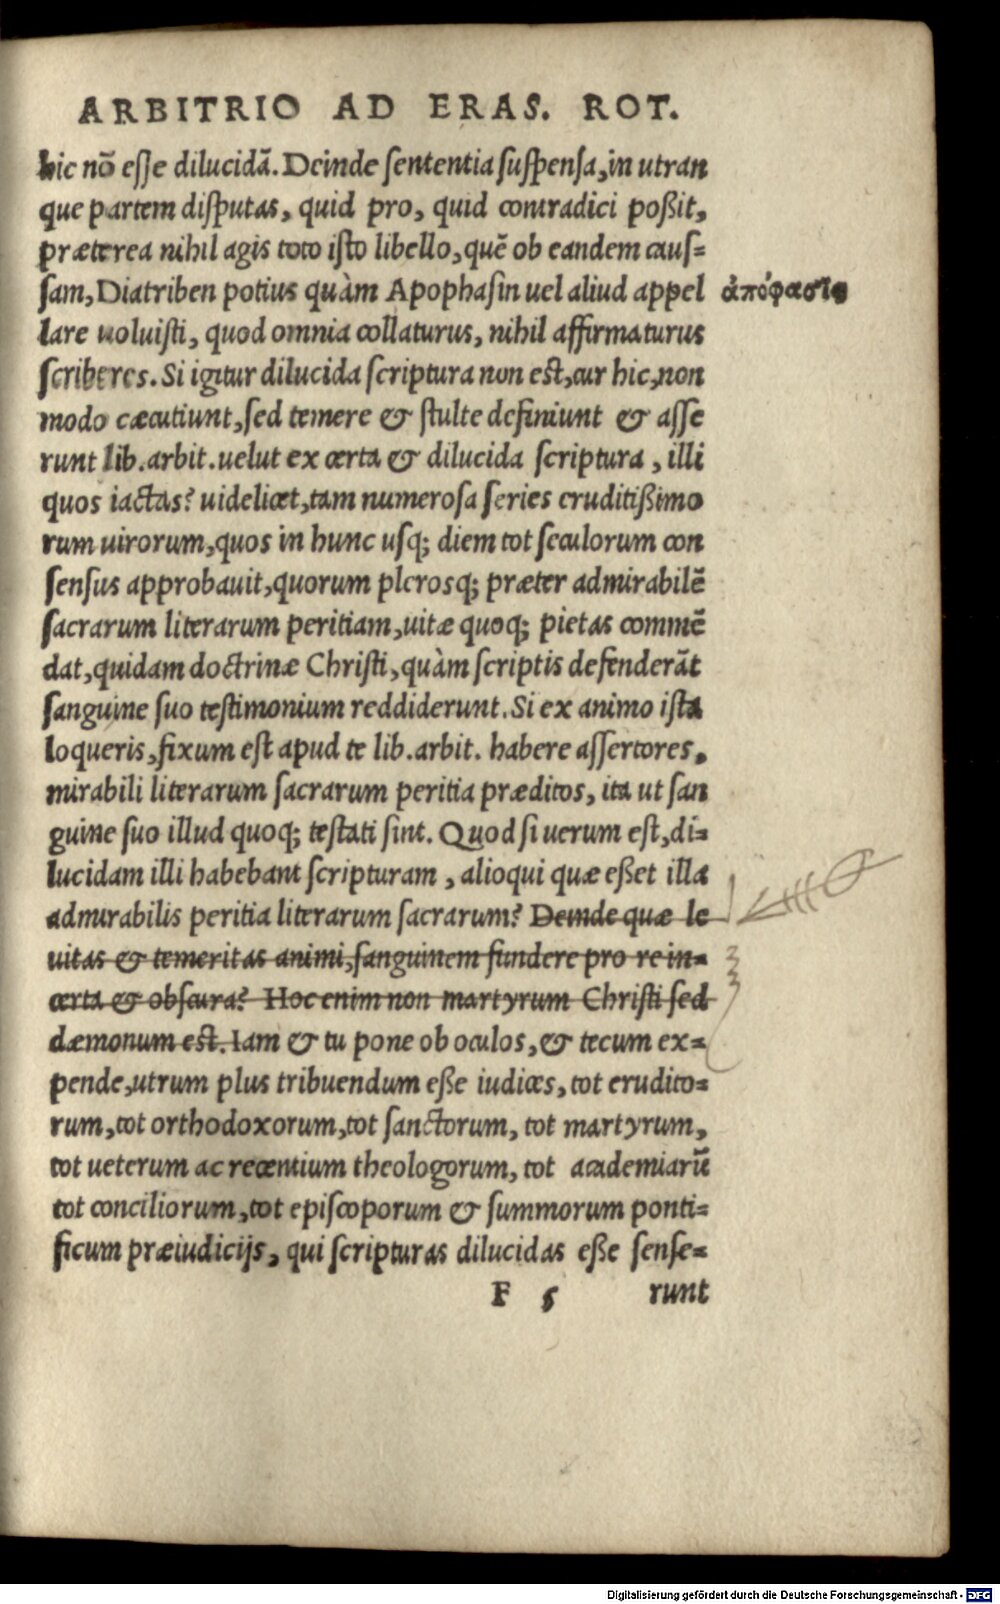 ARBITRIO AD ERAS. ROT.
hic nō eſſe dilucidā. Deinde ſententia ſuſpenſa, in utran
que partem diſputas, quid pro, quid contradici poßit,
præterea nihil agis toto iſto libello, quē ob eandem cauſ=
ſam, Diatriben potius quàm Apophaſin uel aliud appel
ἀπόφασις
lare uoluiſti, quod omnia collaturus, nihil affirmaturus
ſcriberes. Si igitur dilucida ſcriptura non eſt, cur hic, non
modo cæcutiunt, ſed temere & ſtulte definiunt & aſſe
runt lib. arbit. uelut ex certa & dilucida ſcriptura, illi
quos iactas? uidelicet, tam numeroſa ſeries eruditißimo
rum uirorum, quos in hunc uſq; diem tot ſeculorum con
ſenſus approbauit, quorum pleroſq; præter admirabilē
ſacrarum literarum peritiam, uitæ quoq; pietas commē
dat, quidam doctrinæ Chriſti, quàm ſcriptis defenderāt
ſanguine ſuo teſtimonium reddiderunt. Si ex animo iſta
loqueris, fixum eſt apud te lib. arbit. habere aſſertores,
mirabili literarum ſacrarum peritia præditos, ita ut ſan
guine ſuo illud quoq; teſtati ſint. Quod ſi uerum eſt, di=
lucidam illi habebant ſcripturam, alioqui quæ eßet illa
admirabilis peritia literarum ſacrarum? Deinde quæ le
uitas & temeritas animi, ſanguinem fundere pro re in=
certa & obſcura? Hoc enim non martyrum Chriſti ſed
dæmonum eſt. Iam & tu pone ob oculos, & tecum ex=
pende, utrum plus tribuendum eße iudices, tot erudito=
rum, tot orthodoxorum, tot ſanctorum, tot martyrum,
tot ueterum ac recentium theologorum, tot academiarū
tot conciliorum, tot epiſcoporum & ſummorum ponti=
ficum præiudicijs, qui ſcripturas dilucidas eße ſenſe=
F 5 runt
Digitalisierung gefördert durch die Deutsche Forschungsgemeinschaft - DFG